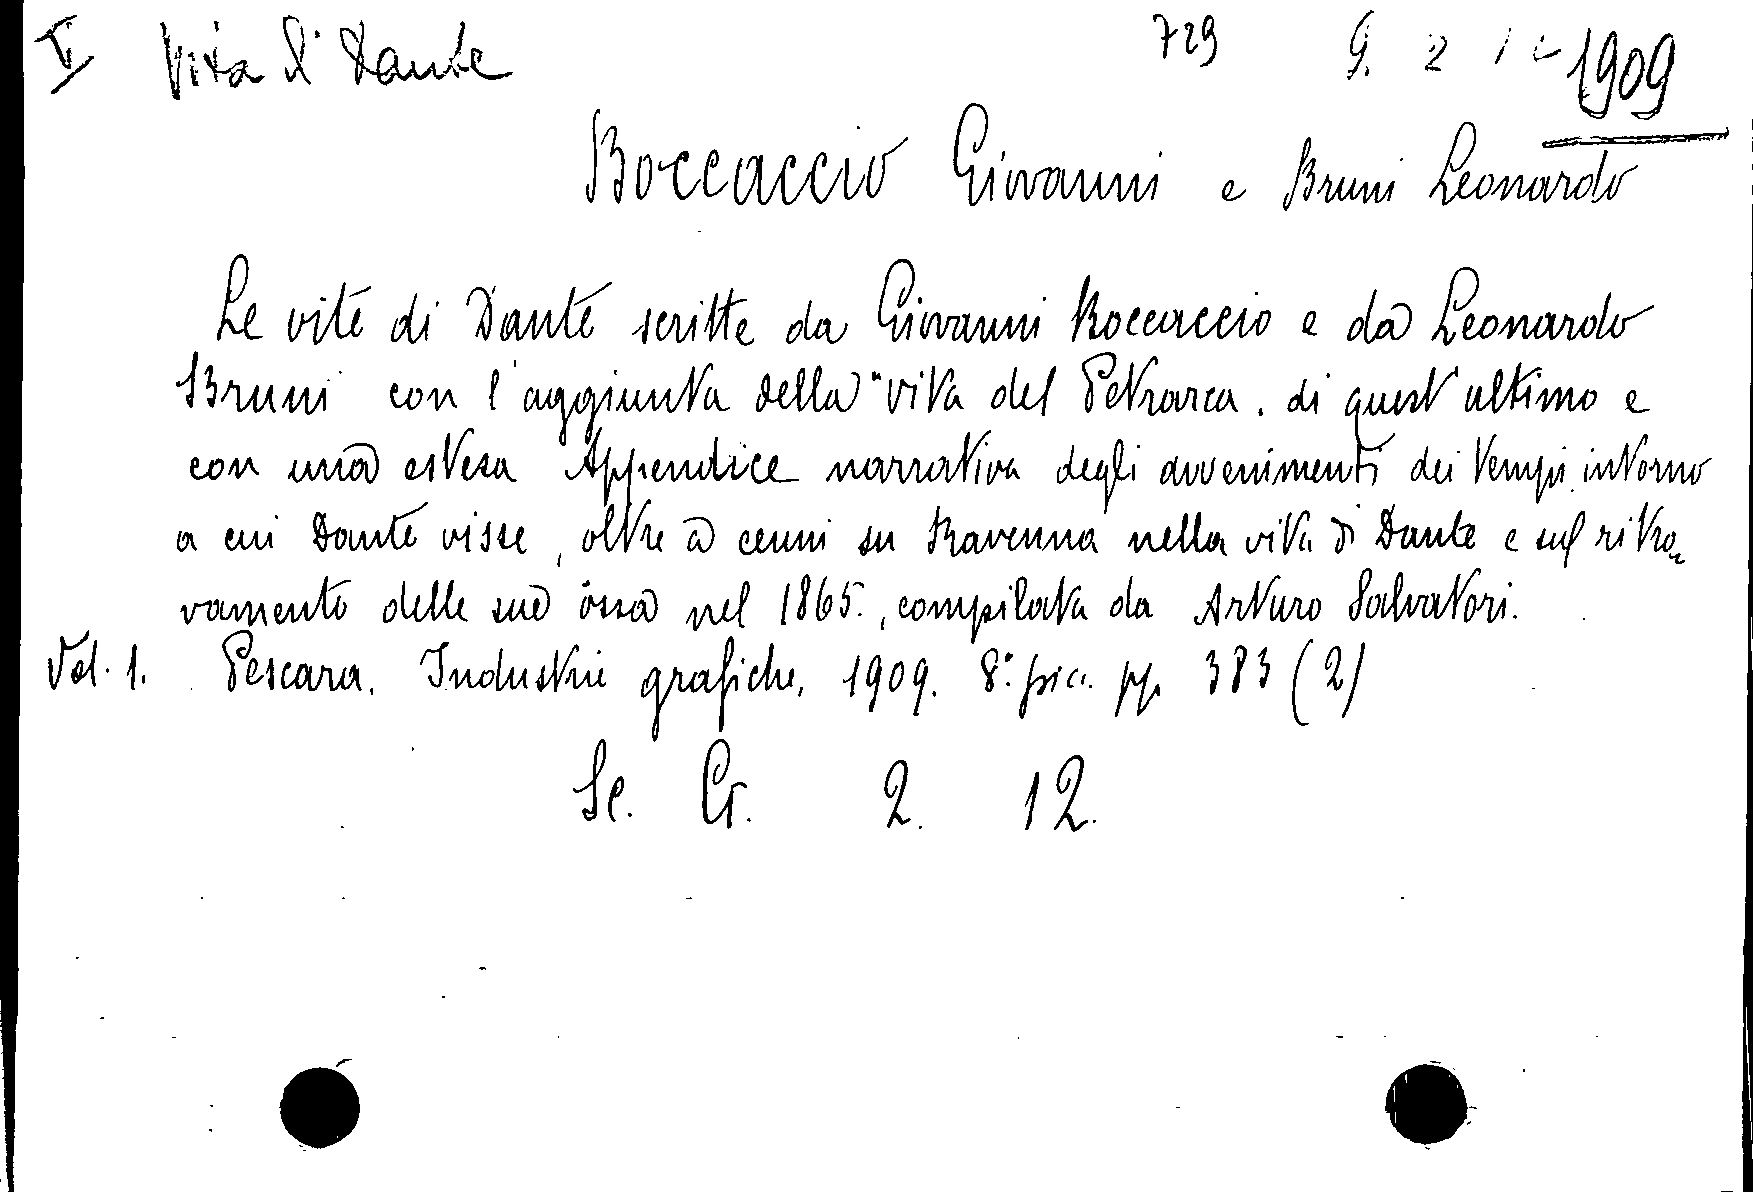 V Vita di Dante 729 G. 2 1909
Boccaccio Giovanni e Bruni Leonardo
Le vite di Dante scritte da Giovanni Boccaccio e da Leonardo
Bruni con l'aggiunta della "vita del Petrarca. di quest'ultimo e
con una estesa Appendice narrativa degli avvenimenti dei tempi intorno
a cui Dante visse, oltre a cenni su Ravenna nella vita di Dante e sul ritro-
vamento delle sue ossa nel 1865., compilata da Arturo Salvatori.
Vol. 1. Pescara. Industrie grafiche, 1909. 8º picc. pp. 383 (2)
Se. Cr. 2. 12.